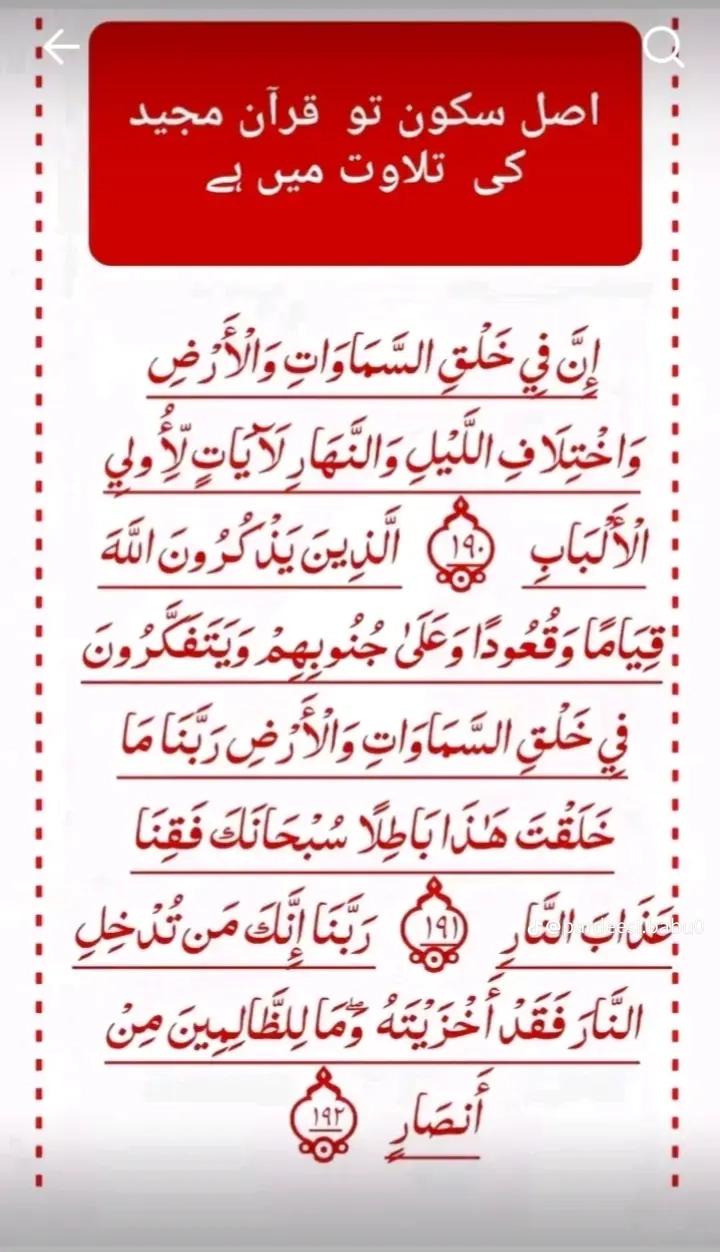 اصل سکون تو قرآن مجید
کی تلاوت میں ہے
إِنَّ فِي خَلْقِ السَّمَاوَاتِ وَالْأَرْضِ
وَاخْتِلَافِ اللَّيْلِ وَالنَّهَارِ لَآيَاتٍ لِّأُولِي
الْأَلْبَابِ ١٩٠ الَّذِينَ يَذْكُرُونَ اللَّهَ
قِيَامًا وَقُعُودًا وَعَلَىٰ جُنُوبِهِمْ وَيَتَفَكَّرُونَ
فِي خَلْقِ السَّمَاوَاتِ وَالْأَرْضِ رَبَّنَا مَا
خَلَقْتَ هَٰذَا بَاطِلًا سُبْحَانَكَ فَقِنَا
عَذَابَ النَّارِ ١٩١ رَبَّنَا إِنَّكَ مَن تُدْخِلِ
النَّارَ فَقَدْ أَخْزَيْتَهُ ۖ وَمَا لِلظَّالِمِينَ مِنْ
أَنصَارٍ ١٩٢